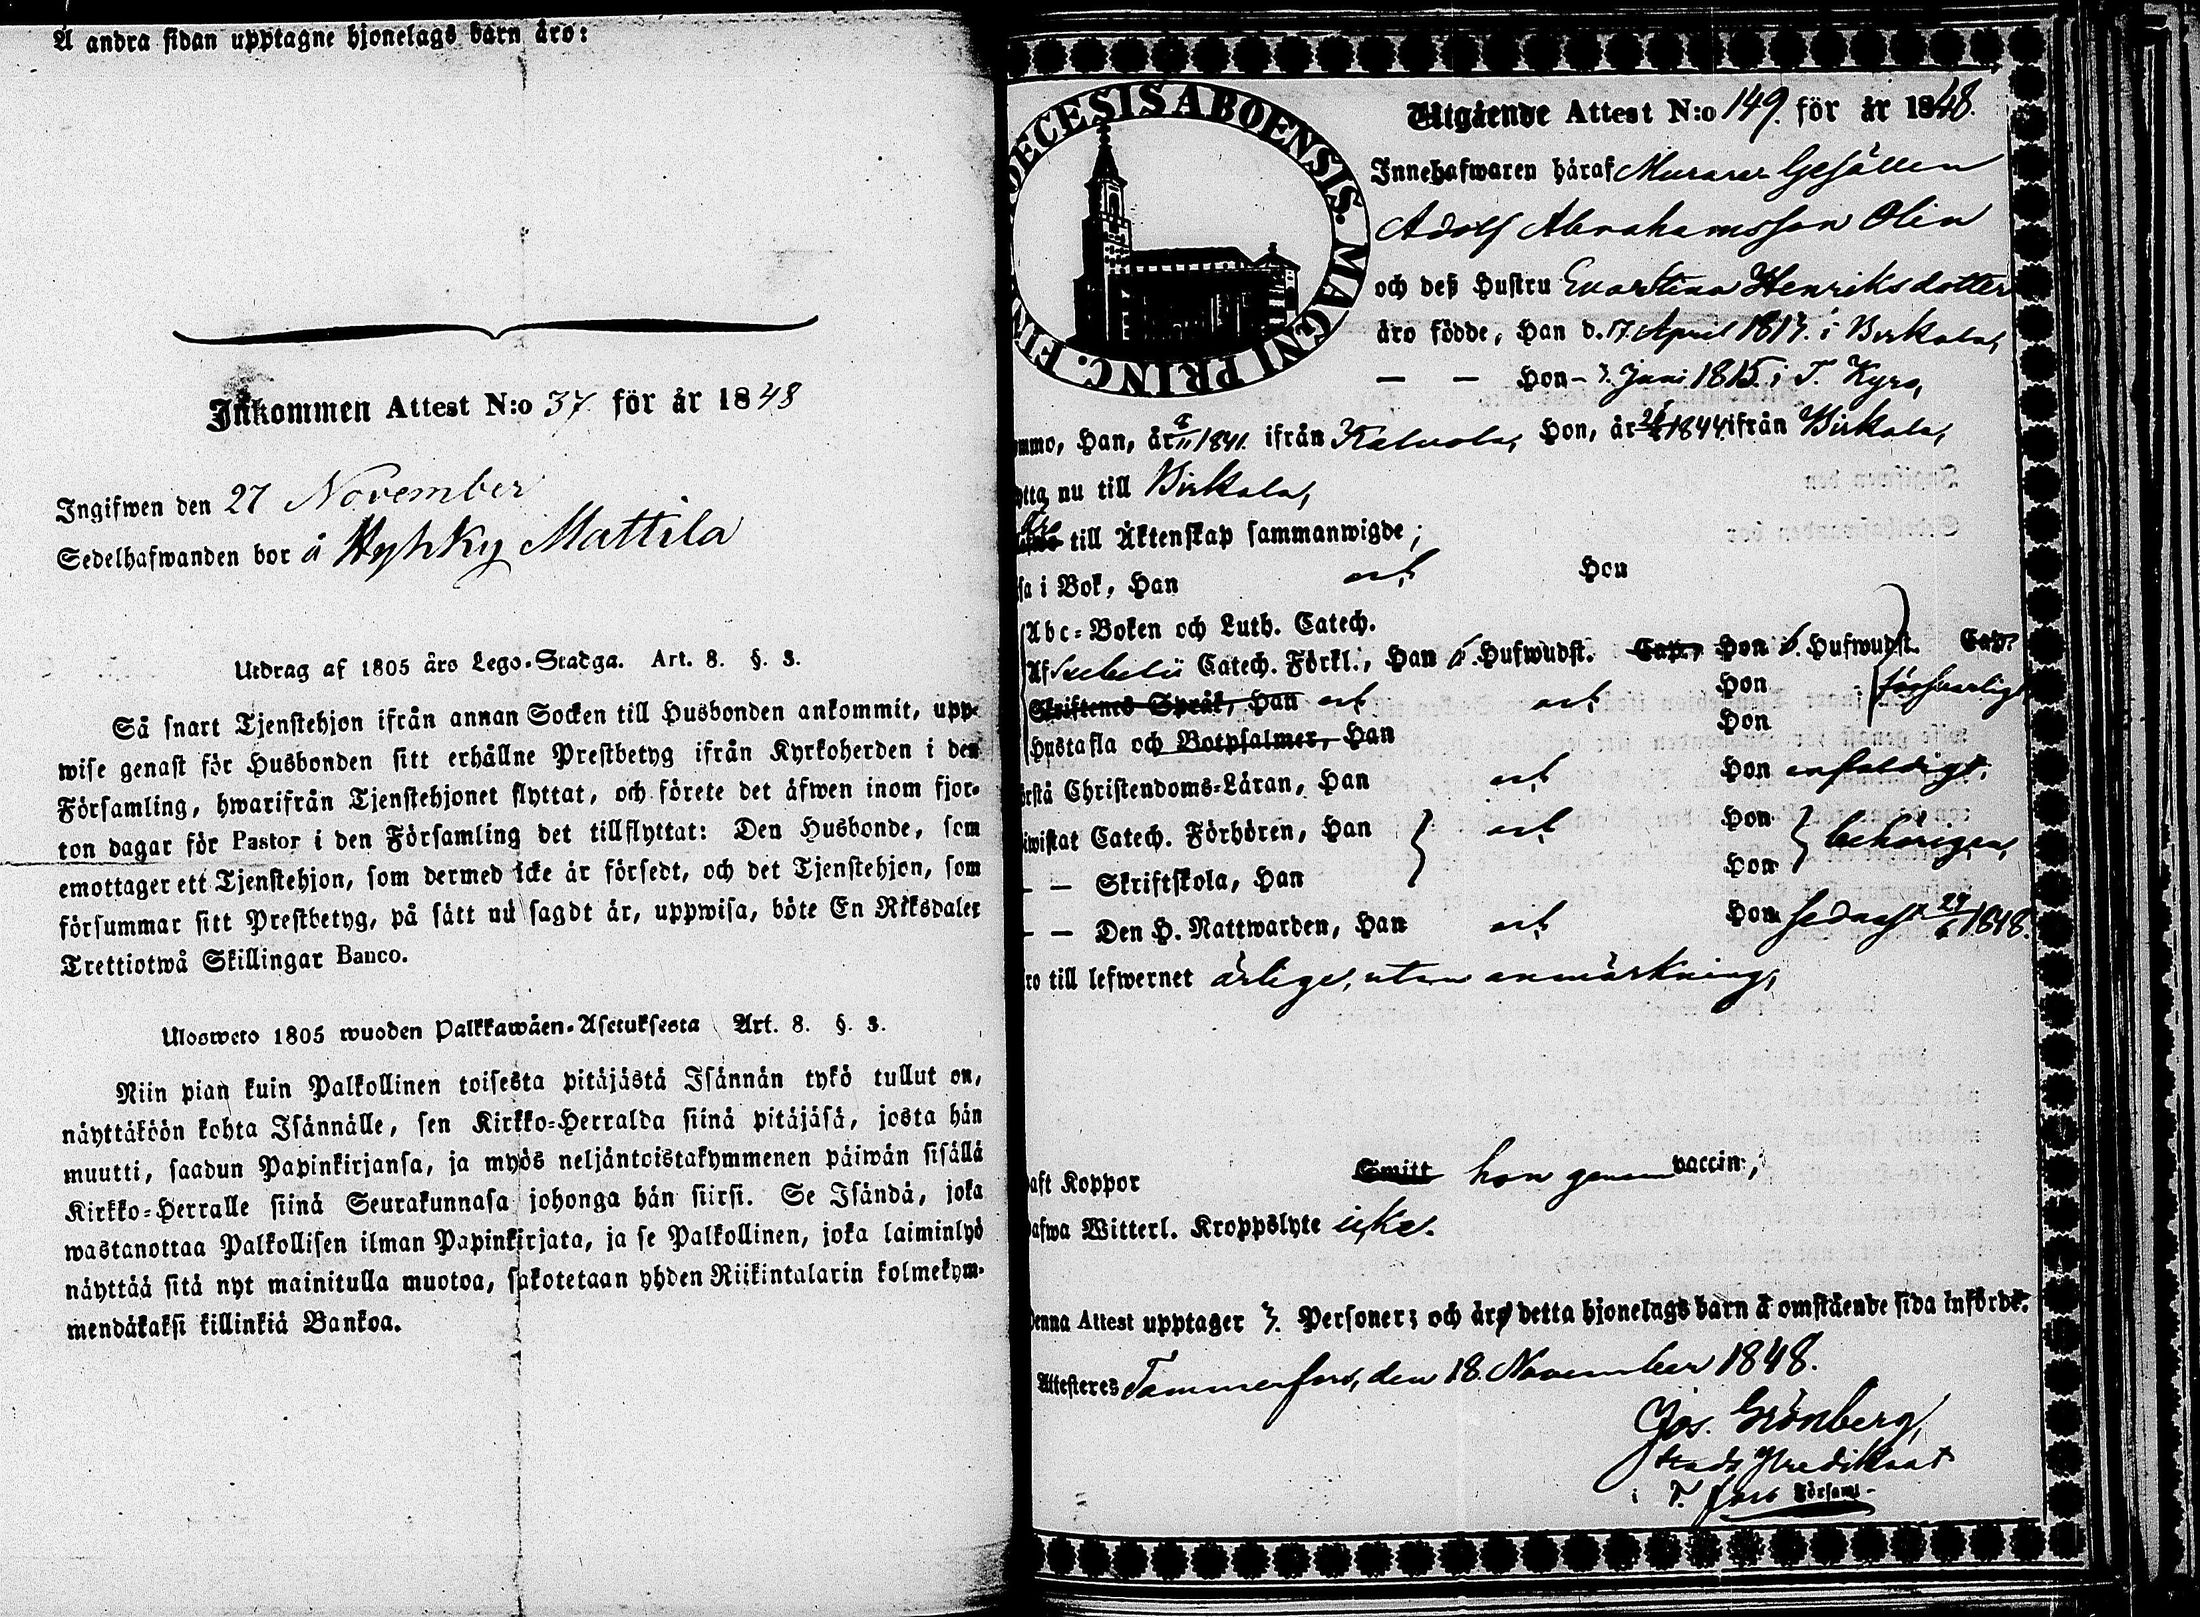 Å andra sidan upptagne hjonelags barn äro:
Inkommen Attest N:o 37 för år 1848
Ingifwen den 27 November
Sedelhafwanden bor å Hyhky Mattila
Utdrag af 1805 års Lego-Stadga. Art. 8. §. 3.
Så snart Tjenstehjon ifrån annan Socken till Husbonden ankommit, upp-
wise genast för Husbonden sitt erhållne Prestbetyg ifrån Kyrkoherden i den
Församling, hwarifrån Tjenstehjonet flyttat, och förete det äfwen inom fjor-
ton dagar för Pastor i den Församling det tillflyttat: Den Husbonde, som
emottager ett Tjenstehjon, som dermed icke är försedt, och det Tjenstehjon, som
försummar sitt Prestbetyg, på sätt nu sagdt är, uppwisa, böte En Riksdaler
Trettiotwå Skillingar Banco.
Ulosweto 1805 wuoden Palkkawäen-Asetuksesta Art. 8. §. 3.
Niin pian kuin Palkollinen toisesta pitäjästä Isännän tykö tullut on,
näyttäköön kohta Isännälle, sen Kirkko-Herralda siinä pitäjäsä, josta hän
muutti, saadun Papinkirjansa, ja myös neljäntoistakymmenen päiwän sisällä
Kirkko-Herralle siinä Seurakunnasa johonga hän siirsi. Se Isändä, joka
wastanottaa Palkollisen ilman Papinkirjata, ja se Palkollinen, joka laiminlyö
näyttää sitä nyt mainitulla muotoa, sakotetaan yhden Riikintalarin kolmekym-
mendäkaksi killinkiä Bankoa.
DECESIS ABOENSIS. MAGNI PRINC. FIN
Utgående Attest N:o 149. för år 1848.
Innehafwaren häraf Murare Gesällen
Adolf Abrahamsson Olin
och deß Hustru Eva Stina Henriksdotter
äro födde, Han d. 17. April 1817. i Birkala,
— — Hon - 7. Juni 1815. i T. Kyro,
ommo, Han, år 11 1841. ifrån Kalvola, Hon, år 1844 ifrån Birkala,
ytta nu till Birkala,
Äro till Äktenskap sammanwigde;
sa i Bok, Han och Hon
Abc-Boken och Luth. Catech.
Af Svebelii Catech. Förkl., Han 6. Hufwudst. Cap., Hon 6. Hufwudst. Cap.
Skriftenes Språk, Han och och Hon försvarligt
Hustafla och Botpsalmer, Han Hon
örstå Christendoms-Läran, Han och Hon enfaldigt.
iwistat Catech. Förhören, Han och Hon behörigen,
— — Skriftskola, Han Hon
— — Den H. Nattwarden, Han och Hon sednast 1848.
ro till lefwernet ärlige, utan anmärkning,
aft Koppor Smitt hon genom vaccin;
afwa Witterl. Kroppslyte icke.
Denna Attest upptager 7. Personer; och äro detta hjonelags barn å omstående sida införde.
Attesteres Tammerfors, den 18. November 1848.
Jos. Grönberg,
Stads Predikant
i T. fors Församl-